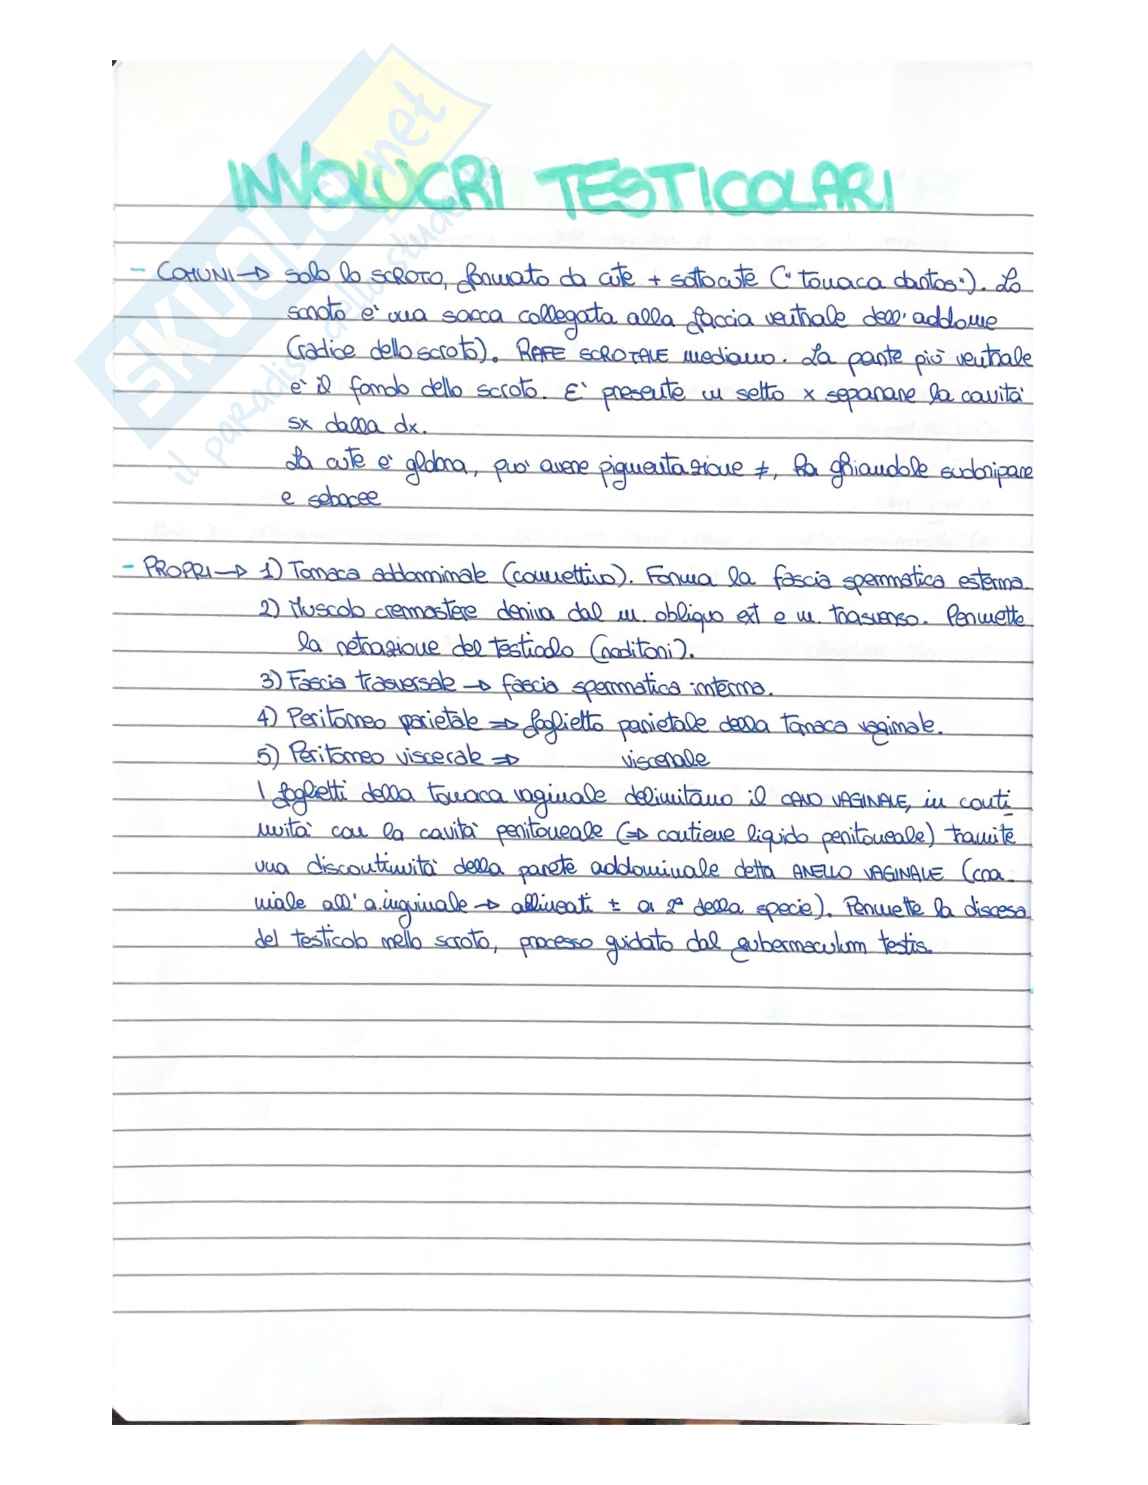 INVOLUCRI TESTICOLARI
SKUOLA.net
il paradiso dello studente
- COMUNI → solo lo SCROTO, formato da cute + sottocute ("tonaca dartos"). Lo
scroto è una sacca collegata alla faccia ventrale dell'addome
(radice dello scroto). RAFE SCROTALE mediano. La parte più ventrale
è il fondo dello scroto. E' presente un setto x separare la cavità
sx dalla dx.
La cute è glabra, può avere pigmentazione ≠, ha ghiandole sudoripare
e sebacee
- PROPRI → 1) Tonaca addominale (connettivo). Forma la fascia spermatica esterna.
2) Muscolo cremastere deriva dal m. obliquo ext e m. trasverso. Permette
la retrazione del testicolo (roditori).
3) Fascia trasversale → fascia spermatica interna.
4) Peritoneo parietale ⇒ foglietto parietale della tonaca vaginale.
5) Peritoneo viscerale ⇒ viscerale
I foglietti della tonaca vaginale delimitano il CAVO VAGINALE, in conti
nuità con la cavità peritoneale (⇒ contiene liquido peritoneale) tramite
una discontinuità della parete addominale detta ANELLO VAGINALE (cra-
niale all'a.inguinale → allineati ± a 2ª della specie). Permette la discesa
del testicolo nello scroto, processo guidato dal gubernaculum testis.